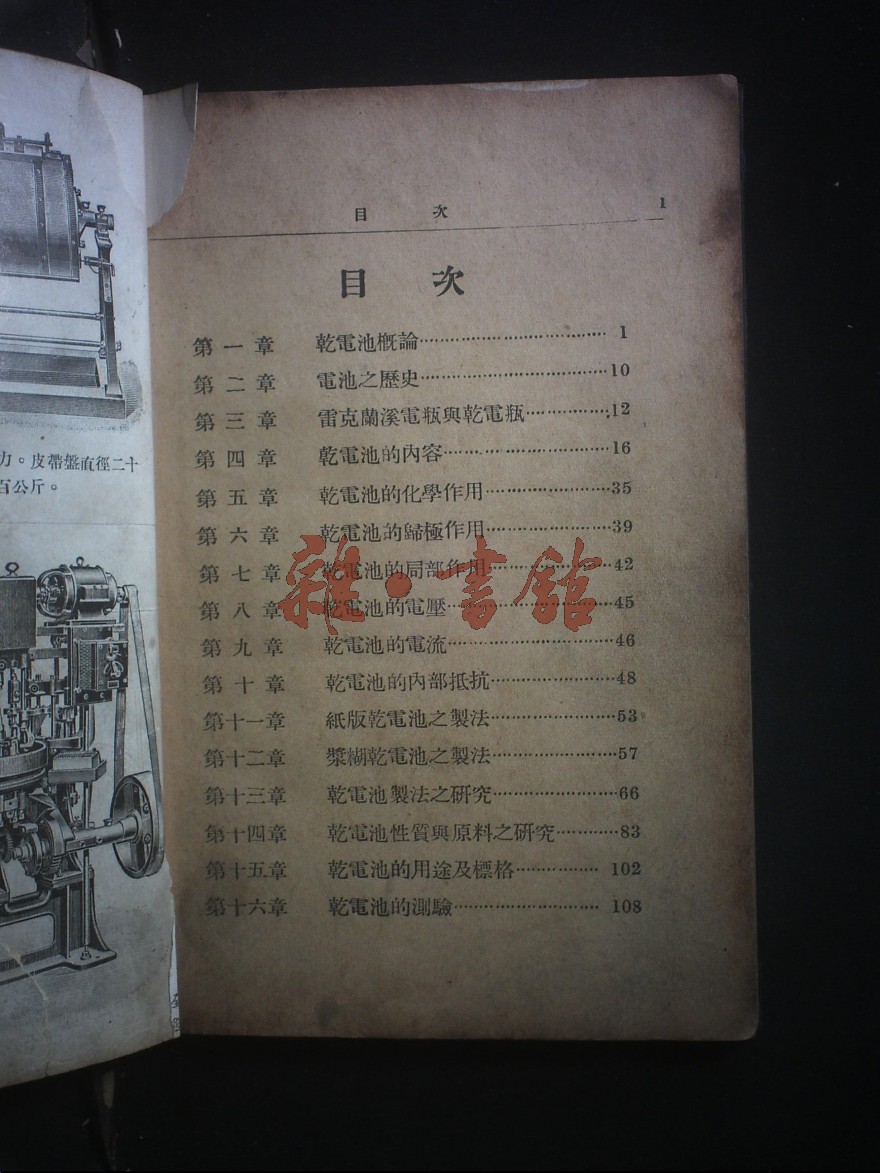 力。皮帶盤直徑二十
百公斤。
目 次 1
目 次
第一章 乾電池概論……………………………1
第二章 電池之歷史……………………………10
第三章 雷克蘭溪電瓶與乾電瓶……………12
第四章 乾電池的內容…………………………16
第五章 乾電池的化學作用……………………35
第六章 乾電池的歸極作用……………………39
第七章 乾電池的局部作用……………………42
第八章 乾電池的電壓…………………………45
第九章 乾電池的電流…………………………46
第十章 乾電池的內部抵抗……………………48
第十一章 紙版乾電池之製法…………………53
第十二章 漿糊乾電池之製法…………………57
第十三章 乾電池製法之研究…………………66
第十四章 乾電池性質與原料之研究…………83
第十五章 乾電池的用途及標格……………102
第十六章 乾電池的測驗……………………108
雜·書館